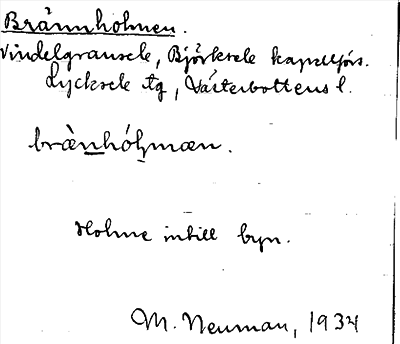 Brännholmen.
Vindelgransele, Björksele kapellförs.
Lycksele tg, Västerbottens l.
brànhólmæn.
Holme intill byn.
M. Neuman, 1934